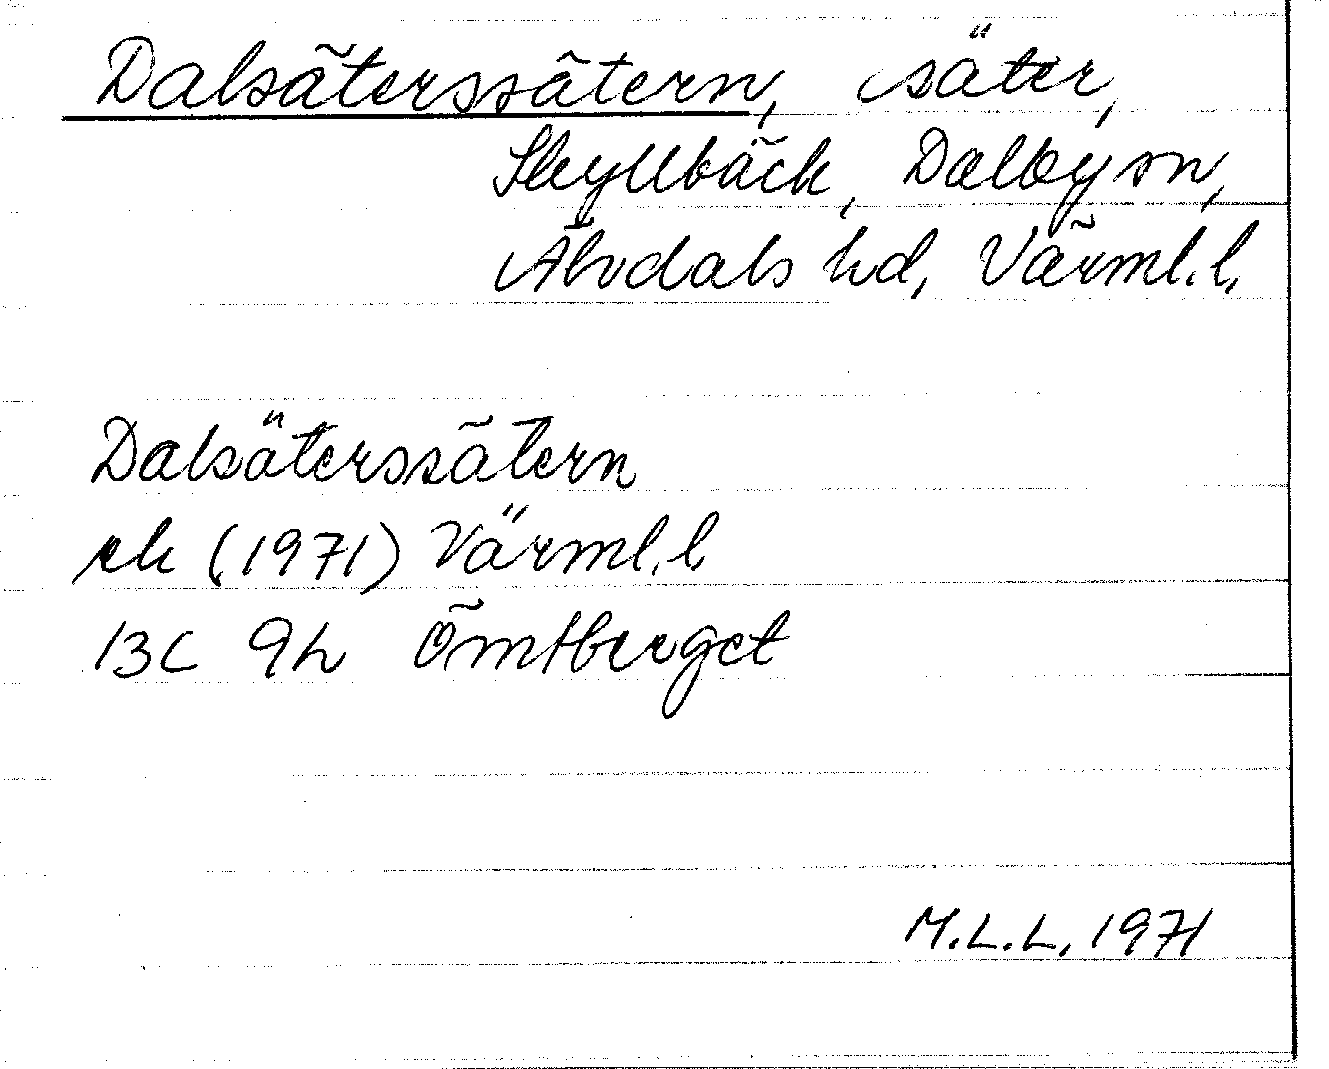 Dalsäterssätern, säter,
Skyllbäck, Dalby sn,
Älvdals hd, Värml. l.
Dalsäterssätern
ek (1971) Värml. l.
13C 9h Ömtberget
M.L.L. 1971